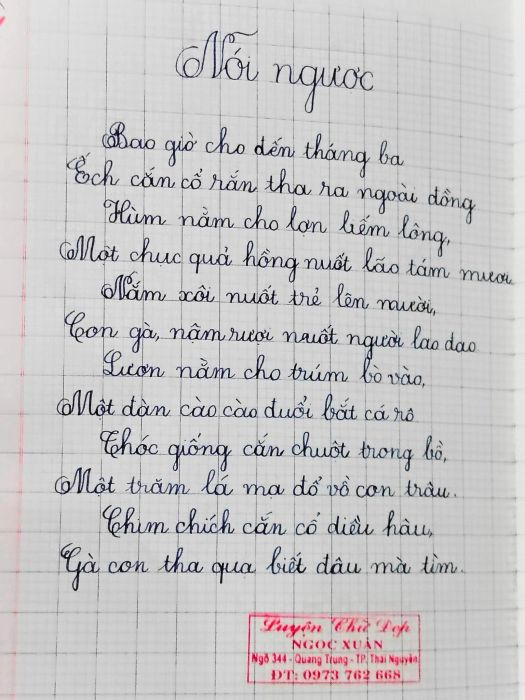 Nói ngược
Bao giờ cho đến tháng ba
Ếch cắn cổ rắn tha ra ngoài đồng
Hùm nằm cho lợn liếm lông,
Một chục quả hồng nuốt lão tám mươi
Nắm xôi nuốt trẻ lên mười,
Con gà, nậm rượi nuốt người lao đao
Lươn nằm cho trúm bò vào,
Một đàn cào cào đuổi bắt cá rô
Thóc giống cắn chuột trong bồ,
Một trăm lá mạ đổ vồ con trâu.
Chim chích cắn cổ diều hâu,
Gà con tha quạ biết đâu mà tìm.
Luyện Chữ Đẹp
NGỌC XUÂN
Ngõ 344 - Quang Trung - TP. Thái Nguyên
ĐT: 0973 762 668